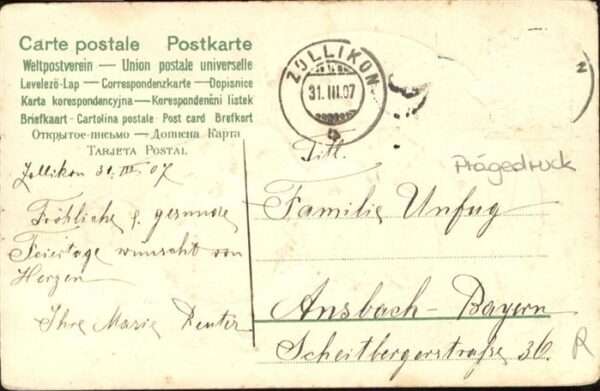 Carte postale Postkarte
Weltpostverein — Union postale universelle
Levelező-Lap — Correspondenzkarte — Dopisnice
Karta korespondencyjna — Korespondenční lístek
Briefkaart - Cartolina postale - Post card Brefkort
Открытое письмо — Дописна Карта
TARJETA POSTAL
ZOLLIKON
31. III. 07
N
Zollikon 31. III. 07
Fröhliche & gesunde
Feiertage wünscht von
Herzen
Ihre Marie Reuter
Titl.
Prägedruck
Familie Unfug
Ansbach - Bayern
Scheitbergerstraße 36.
R